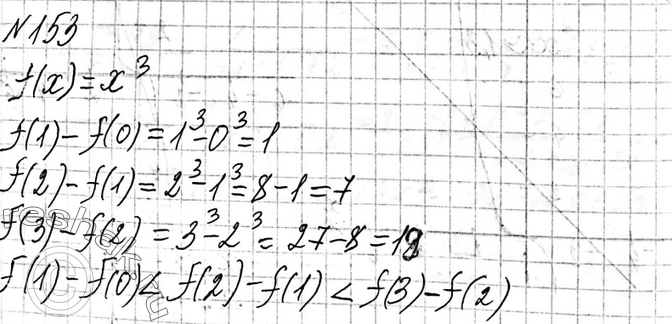 №153
f(x)=x³
f(1)-f(0)=1³-0³=1
f(2)-f(1)=2³-1³=8-1=7
f(3)-f(2)=3³-2³=27-8=19
f(1)-f(0)<f(2)-f(1)<f(3)-f(2)